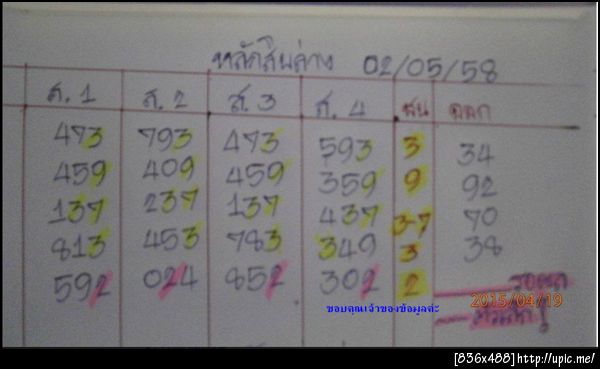 หลักสิบล่าง 02/05/58
ส.1 ส.2 ส.3 ส.4 ชน ออก
473 793 473 593 3 34
459 409 459 359 9 92
137 237 137 437 3-7 70
813 453 783 349 3 38
592 024 852 302 2
2015/04/19
ขอบคุณเจ้าของข้อมูลค่ะ
[836x488]http://upic.me/